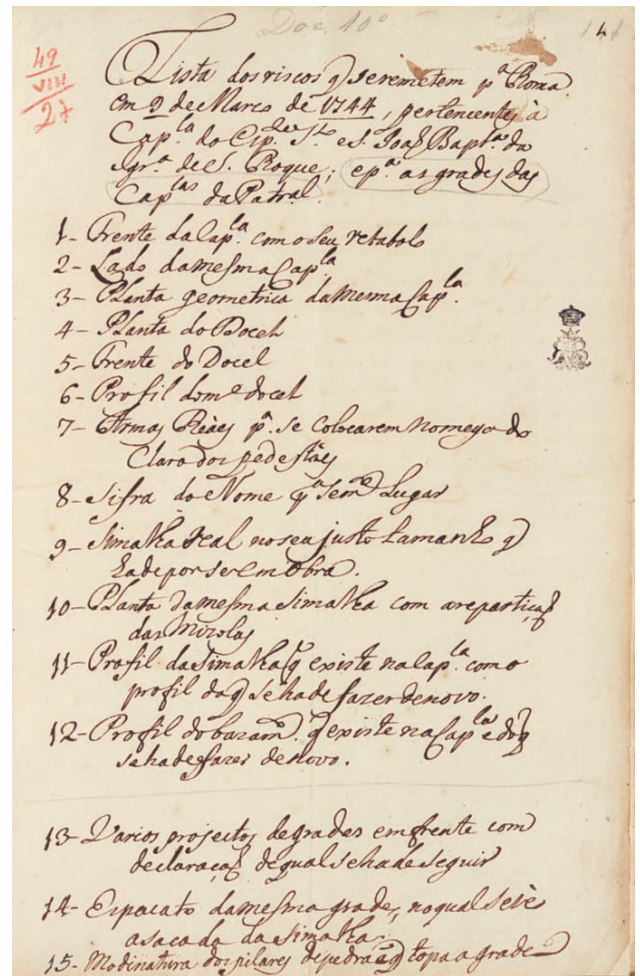 Doc. 10º
141
49
VIII
27
Lista dos riscos q̃ se remetem pª Roma
em 9 de Marco de 1744, pertencentes à
Cap.la do Esp.to S.to e S. Joaõ Bap.ta da
Igr.ª de S. Roque; e pª as grades das
Cap.las da Patral.
1- Frente da Cap.la com o seu retabolo
2- Lado da mesma Cap.la
3- Planta geometrica da mesma Cap.la
4- Planta do Docel
5- Frente do Docel
6- Profil do m.º docel
7- Armas Reàes pª. se colocarem no meyo do
Claro dos pedestàes
8- Sifra do Nome pª o lugar
9- Simalha Real no seu justo tamanho q̃
hade por se em Obra.
10- Planta da mesma Simalha com a repartiçaõ
das Mizolas
11- Profil da Simalha q̃ existe na Cap.la como
profil da q̃ se hade fazer de novo.
12- Profil do bazam.to q̃ existe na Cap.la e do q̃
se hade fazer de novo.
13- Varios projectos de grades em frente com
declaraçaõ de qual se hade seguir
14- Espacato da mesma grade, no qual se vè
a sacada da Simalha.
15- Modinatura dos pilares de pedra em q̃ topa a grade